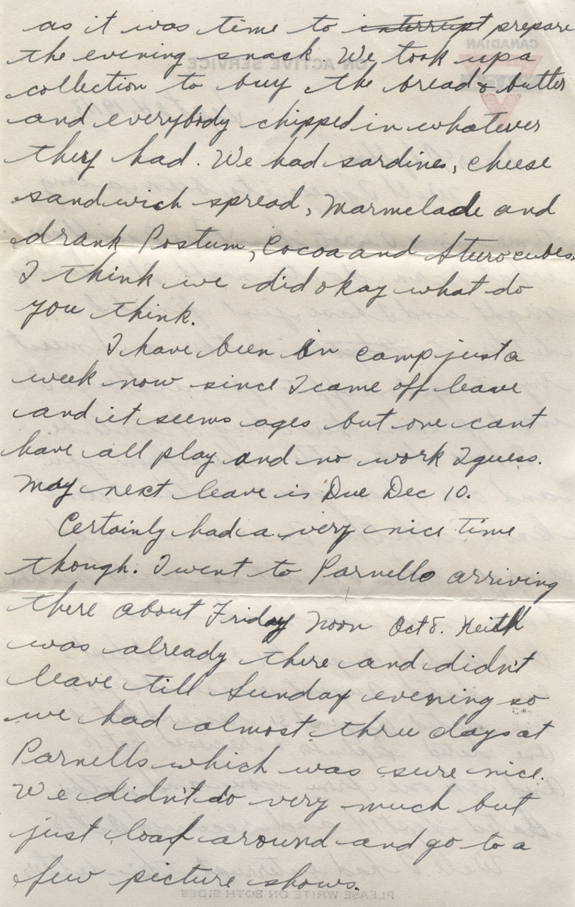 as it was time to interrupt prepare
the evening snack. We took up a
collection to buy the bread & butter
and everybody chipped in whatever
they had. We had sardines, cheese
sandwich spread, Marmelade and
drank Postum, Cocoa and Steero cubes.
I think we did okay what do
you think.
I have been in camp just a
week now since I came off leave
and it seems ages but one cant
have all play and no work I guess.
May next leave is Due Dec 10.
Certainly had a very nice time
though. I went to Parnells arriving
there about Friday Noon Oct 8. Keith
was already there and didn't
leave till Sunday evening so
we had almost three days at
Parnells which was sure nice.
We didn't do very much but
just loaf around and go to a
few picture shows.
CANADIAN
ON ACTIVE SERVICE
PLEASE WRITE ON BOTH SIDES